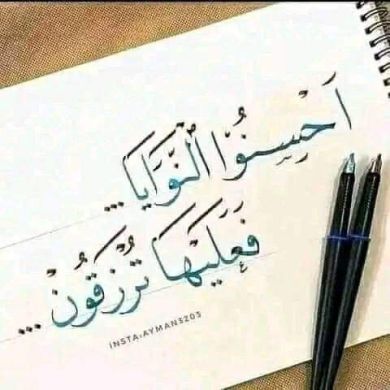 أَحْسِنُوْا النَّوَايَا...
فَعَلَيْهَا تُرْزَقُوْنْ...
INSTA:AYMAN3203